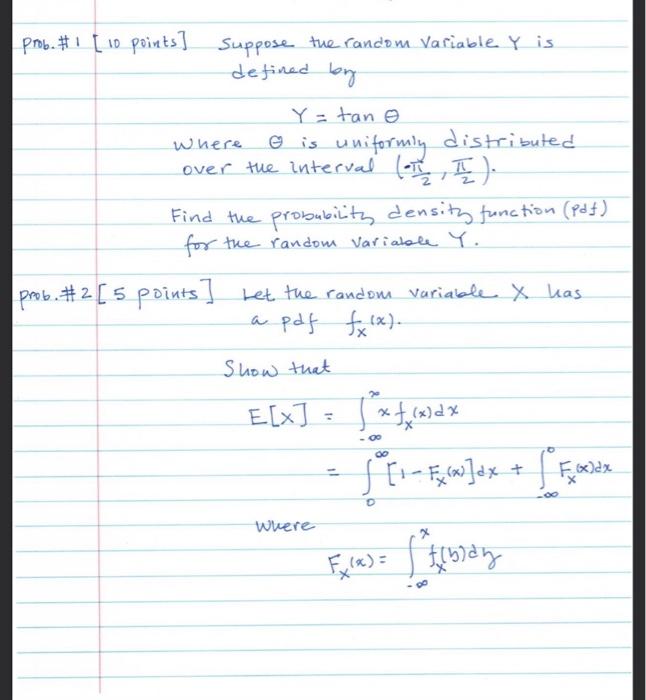 Prob. #1 [10 points] Suppose the random Variable Y is
defined by
Y = tan Θ
Where Θ is uniformly distributed
over the interval (-π/2, π/2).
Find the probability density function (pdf)
for the random variable Y.
prob. #2 [5 points] Let the random variable X has
a pdf f_X(x).
Show that
E[X] = ∫_{-∞}^{∞} x f_X(x) dx
= ∫_0^∞ [1 - F_X(x)] dx + ∫_{-∞}^0 F_X(x) dx
Where
F_X(x) = ∫_{-∞}^x f_X(y) dy